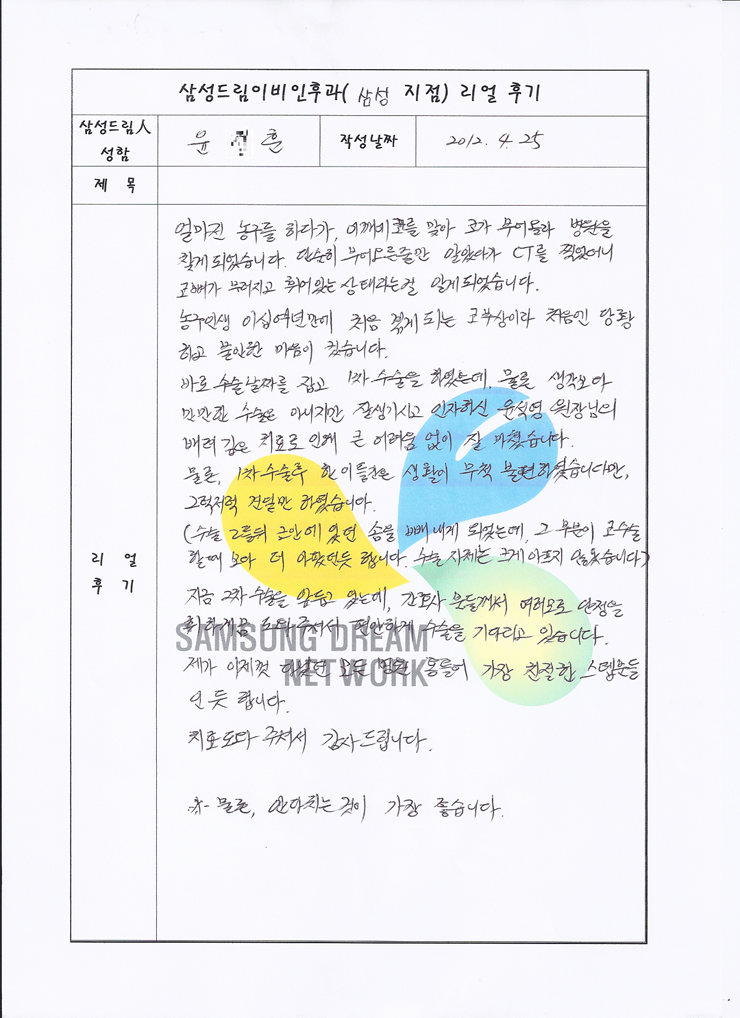 삼성드림이비인후과( 삼성 지점) 리얼 후기
삼성드림人
성함
윤 훈
작성날짜
2012. 4. 25
제 목
리 얼
후 기
얼마전 농구를 하다가, 어깨에 코를 맞아 코가 부어올라 병원을
찾게 되었습니다. 단순히 부어오른줄만 알았다가 CT를 찍었더니
코뼈가 부러지고 휘어있는 상태라는걸 알게되었습니다.
농구인생 이십여년만에 처음 겪게 되는 코부상이라 처음엔 당황
하고 불안한 마음이 컸습니다.
바로 수술날짜를 잡고 1차 수술을 하였는데, 물론 생각보다
만만한 수술은 아니지만 잘생기시고 인자하신 윤석영 원장님의
배려 깊은 치료로 인해 큰 어려움 없이 잘 마쳤습니다.
물론, 1차수술후 한 이틀간은 생활이 무척 불편하였습니다만,
그럭저럭 견딜만 하였습니다.
(수술 2틀뒤 코안에 있던 솜을 빼내게 되었는데, 그 부분이 코수술
할때 보다 더 아팠던듯 합니다. 수술 자체는 크게 아프지 않았습니다)
지금 2차수술을 앞두고 있는데, 간호사 분들께서 여러모로 안정을
취하게끔 도와주셔서 편안하게 수술을 기다리고 있습니다.
SAMSUNG DREAM
NETWORK
제가 이제껏 다녔던 모든 병원 통틀어 가장 친절한 스텝분들
인 듯 합니다.
치료 도와 주셔서 감사드립니다.
※ 물론, 안다치는 것이 가장 좋습니다.